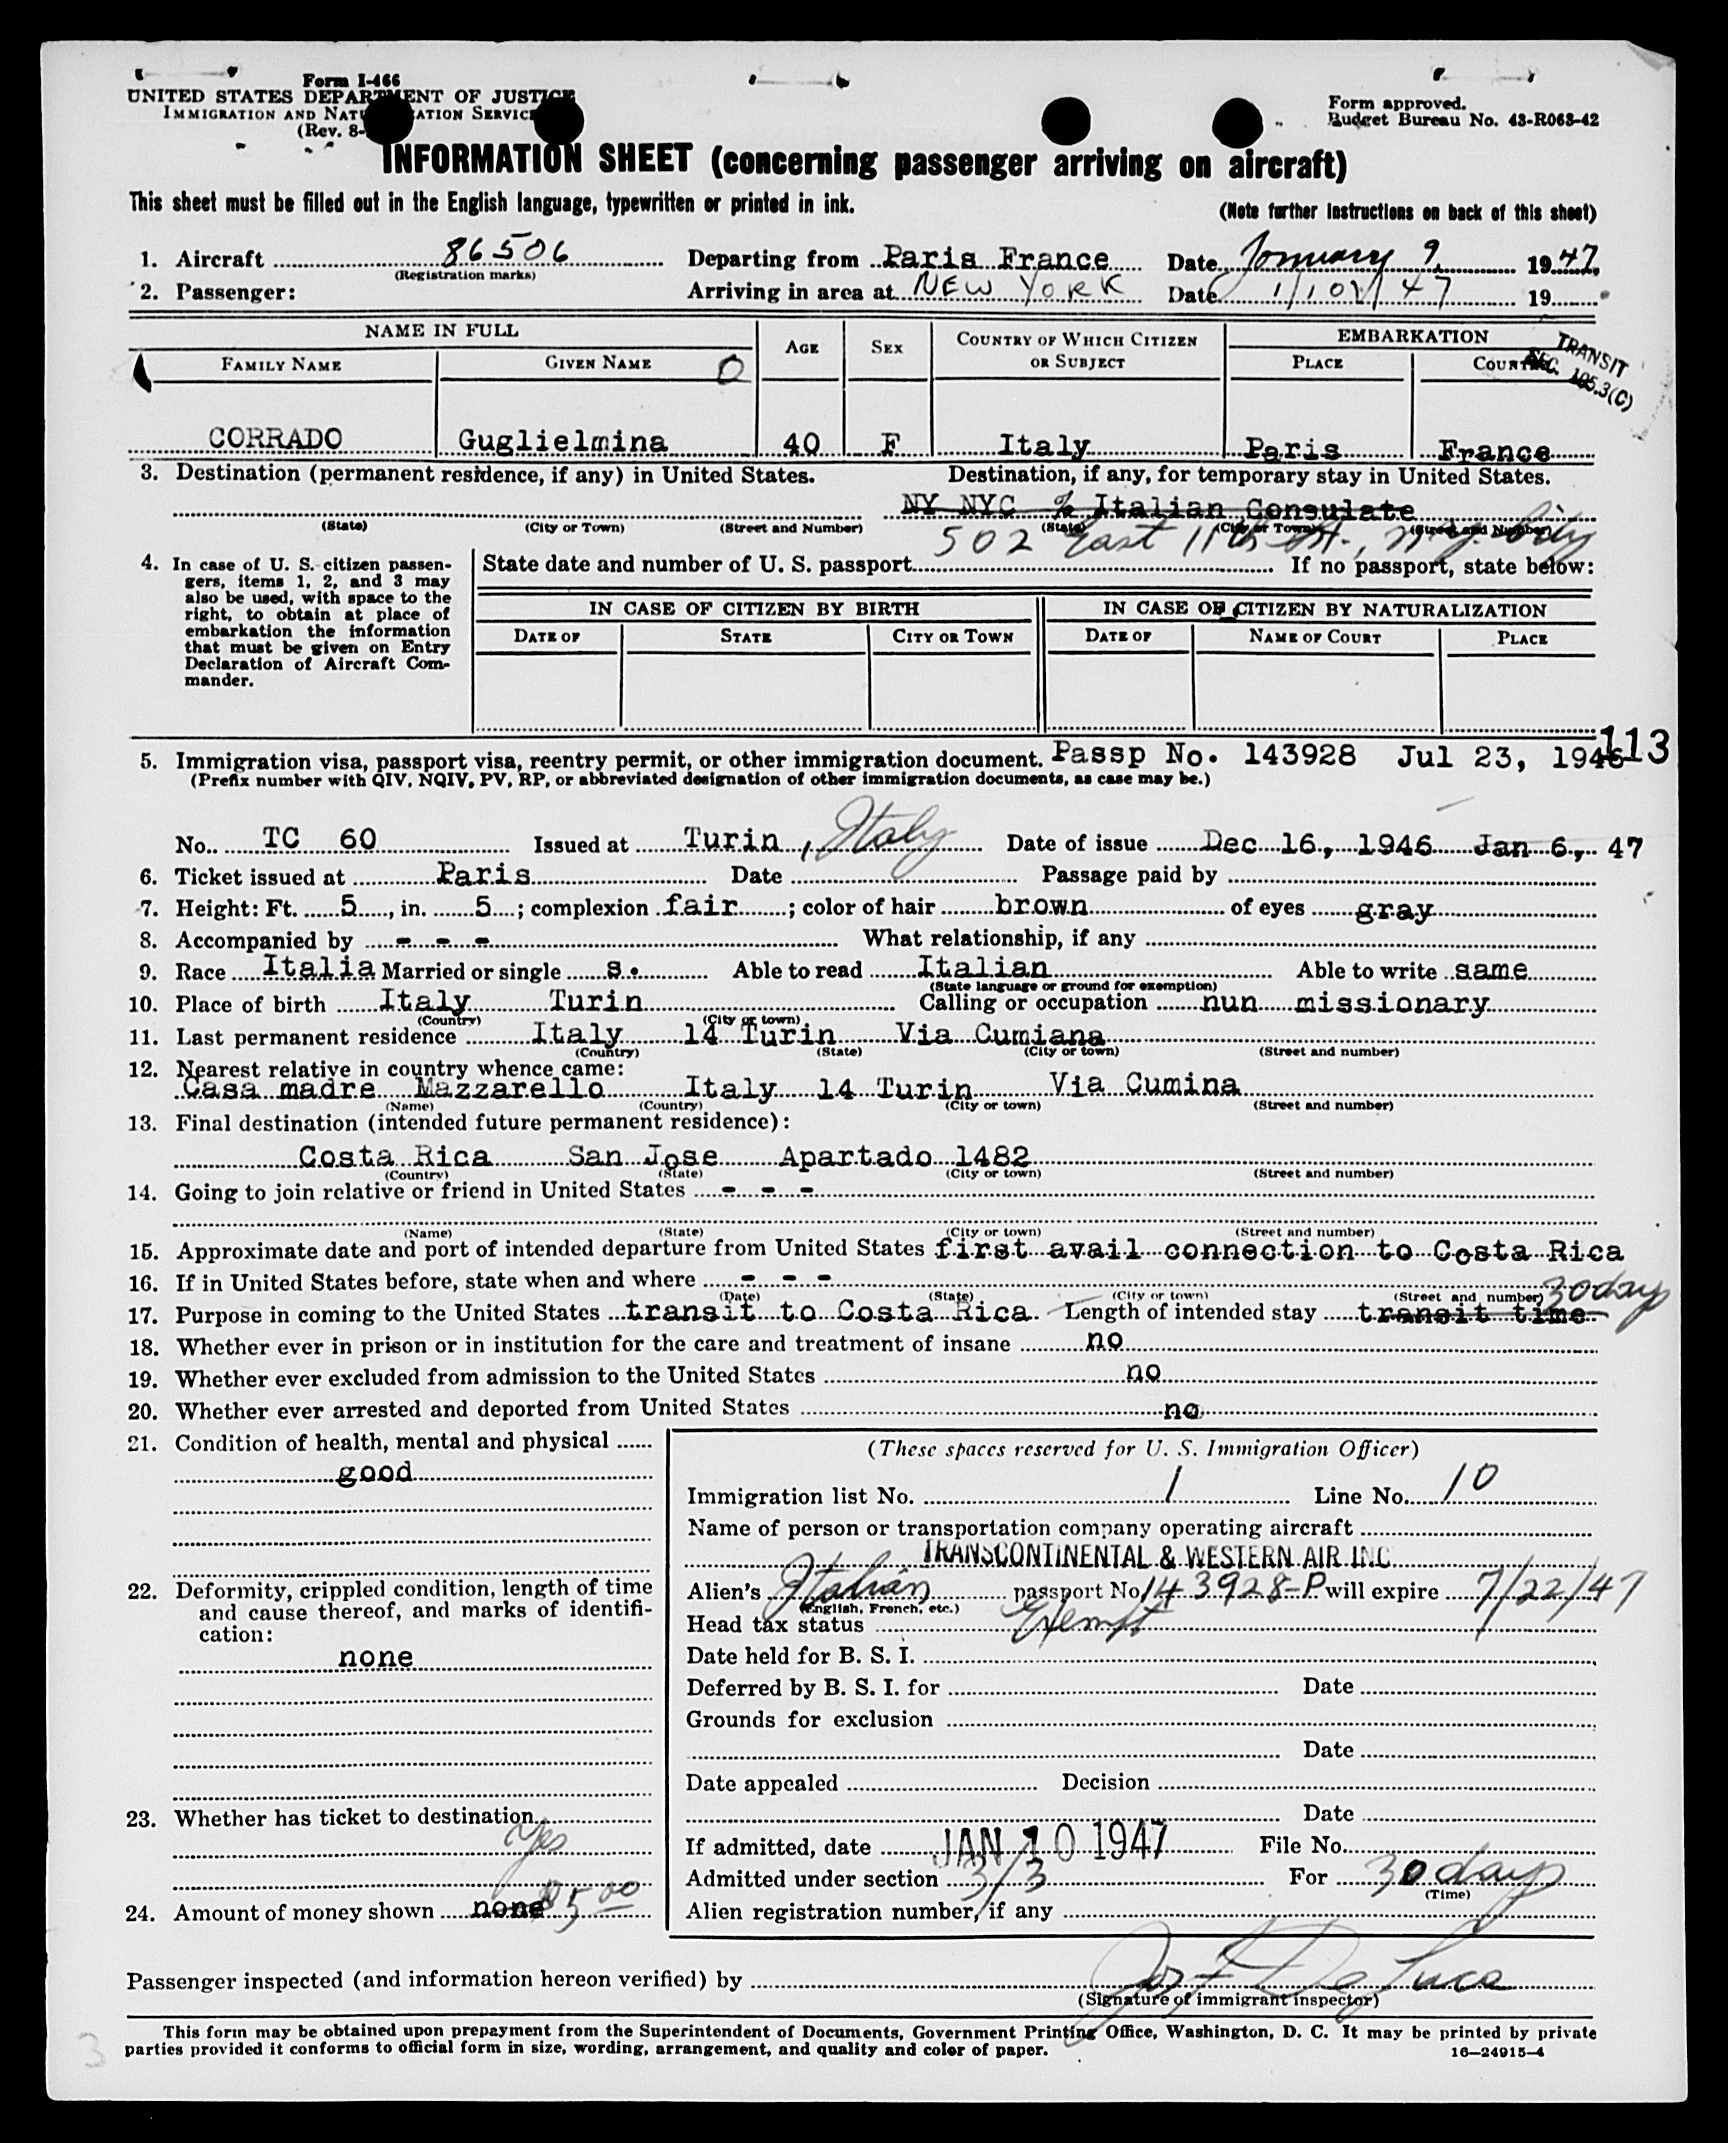 Form I-466
UNITED STATES DEPARTMENT OF JUSTICE
IMMIGRATION AND NATURALIZATION SERVICE
(Rev. 8-
Form approved.
Budget Bureau No. 43-R063-42
INFORMATION SHEET (concerning passenger arriving on aircraft)
This sheet must be filled out in the English language, typewritten or printed in ink.
(Note further instructions on back of this sheet)
1. Aircraft 86506 Departing from Paris France Date January 9, 1947.
(Registration marks)
2. Passenger: Arriving in area at NEW YORK Date 1/10/47 19
NAME IN FULL AGE SEX COUNTRY OF WHICH CITIZEN OR SUBJECT EMBARKATION
FAMILY NAME GIVEN NAME PLACE COUNTRY
TRANSIT
SEC. 105.3(C)
CORRADO Guglielmina 40 F Italy Paris France
3. Destination (permanent residence, if any) in United States. Destination, if any, for temporary stay in United States.
NY NYC % Italian Consulate
(State) (City or Town) (Street and Number) (State) (City or Town) (Street and Number)
502 East 11th St., N.Y. City
4. In case of U. S. citizen passengers, items 1, 2, and 3 may also be used, with space to the right, to obtain at place of embarkation the information that must be given on Entry Declaration of Aircraft Commander.
State date and number of U. S. passport If no passport, state below:
IN CASE OF CITIZEN BY BIRTH IN CASE OF CITIZEN BY NATURALIZATION
DATE OF STATE CITY OR TOWN DATE OF NAME OF COURT PLACE
113
5. Immigration visa, passport visa, reentry permit, or other immigration document. Passp No. 143928 Jul 23, 1946
(Prefix number with QIV, NQIV, PV, RP, or abbreviated designation of other immigration documents, as case may be.)
No. TC 60 Issued at Turin, Italy Date of issue Dec 16, 1946 Jan 6, 47
6. Ticket issued at Paris Date Passage paid by
7. Height: Ft. 5, in. 5; complexion fair; color of hair brown of eyes gray
8. Accompanied by - - - What relationship, if any
9. Race Italia Married or single s. Able to read Italian Able to write same
(State language or ground for exemption)
10. Place of birth Italy Turin Calling or occupation nun missionary
(Country) (City or town)
11. Last permanent residence Italy 14 Turin Via Cumiana
(Country) (State) (City or town) (Street and number)
12. Nearest relative in country whence came:
Casa madre Mazzarello Italy 14 Turin Via Cumina
(Name) (Country) (City or town) (Street and number)
13. Final destination (intended future permanent residence):
Costa Rica San Jose Apartado 1482
(Country) (State) (City or town) (Street and number)
14. Going to join relative or friend in United States - - -
(Name) (State) (City or town) (Street and number)
15. Approximate date and port of intended departure from United States first avail connection to Costa Rica
16. If in United States before, state when and where - - -
(Date) (State) (City or town) (Street and number)
30 day
17. Purpose in coming to the United States transit to Costa Rica Length of intended stay transit time
18. Whether ever in prison or in institution for the care and treatment of insane no
19. Whether ever excluded from admission to the United States no
20. Whether ever arrested and deported from United States no
21. Condition of health, mental and physical
good
(These spaces reserved for U. S. Immigration Officer)
Immigration list No. 1 Line No. 10
Name of person or transportation company operating aircraft
TRANSCONTINENTAL & WESTERN AIR INC
22. Deformity, crippled condition, length of time and cause thereof, and marks of identification:
none
Alien's Italian passport No. 143928-P will expire 7/22/47
(English, French, etc.)
Head tax status Exempt
Date held for B. S. I.
Deferred by B. S. I. for Date
Grounds for exclusion
Date
Date appealed Decision
23. Whether has ticket to destination
yes
Date
If admitted, date JAN 10 1947 File No.
Admitted under section 3/3 For 30 day
(Time)
24. Amount of money shown none $5.00
Alien registration number, if any
Passenger inspected (and information hereon verified) by Jos F De Luca
(Signature of immigrant inspector)
This form may be obtained upon prepayment from the Superintendent of Documents, Government Printing Office, Washington, D. C. It may be printed by private
parties provided it conforms to official form in size, wording, arrangement, and quality and color of paper. 16—24915-4
3